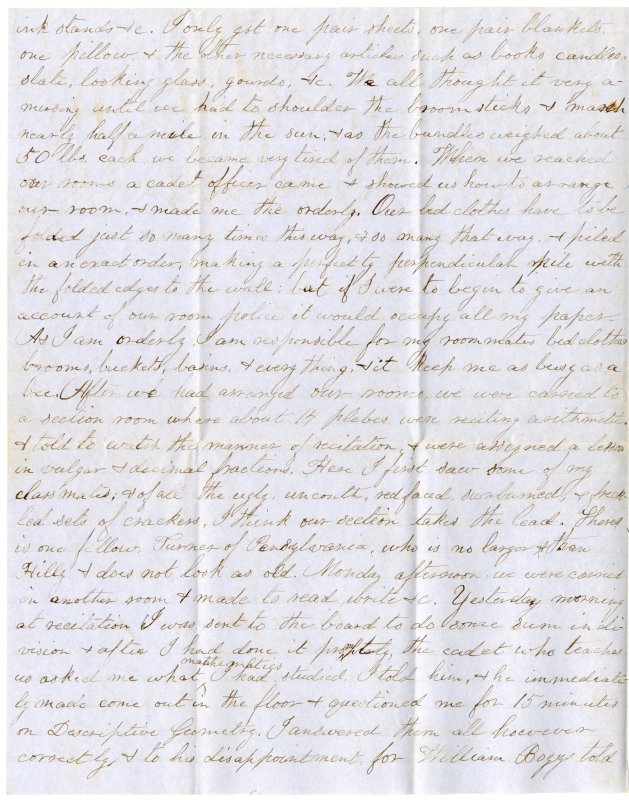 ink stands &c. I only got one pair sheets, one pair blankets,
one pillow & the other necessary articles such as books candles,
slate, looking glass, gourds, &c. We all thought it very a-
musing until we had to shoulder the broomsticks & march
nearly half a mile in the sun; & as the bundles weighed about
50 lbs. each we became very tired of them. When we reached
our rooms a cadet officer came & showed us how to arrange
our room, & made me the orderly. Our bed clothes have to be
folded just so many time this way, & so many that way, & piled
in an exact order, making a perfectly perpendicular pile with
the folded edges to the wall; but if I were to begin to give an
account of our room police it would occupy all my paper.
As I am orderly I am responsible for my roommates bed clothes
brooms, buckets, basins, & every thing, & it keep me as busy as a
bee. After we had arranged our rooms we were carried to
a section room where about 14 plebes were reciting arithmetic.
& told to watch the manner of recitation, & were assigned a lesson
in vulgar & decimal fractions. Here I first saw some of my
classmates; & of all the ugly, uncouth, red faced, sunburned, & frec-
led sets of crackers, I think our section takes the lead. Theres
is one fellow Turner of Pensylvania, who is no larger than
Hilly & does not look as old. Monday afternoon we were carried
in another room & made to read write &c. Yesterday morning
at recitation I was sent to the board to do some sum in di-
vision & after I had done it promptly, the cadet who teaches
us asked me what mathematics I had studied. I told him, & he immediate-
ly made come out in the floor & questioned me for 15 minutes
on Descriptive Geometry. I answered them all however
correctly & to his disappointment, for William Boggs told